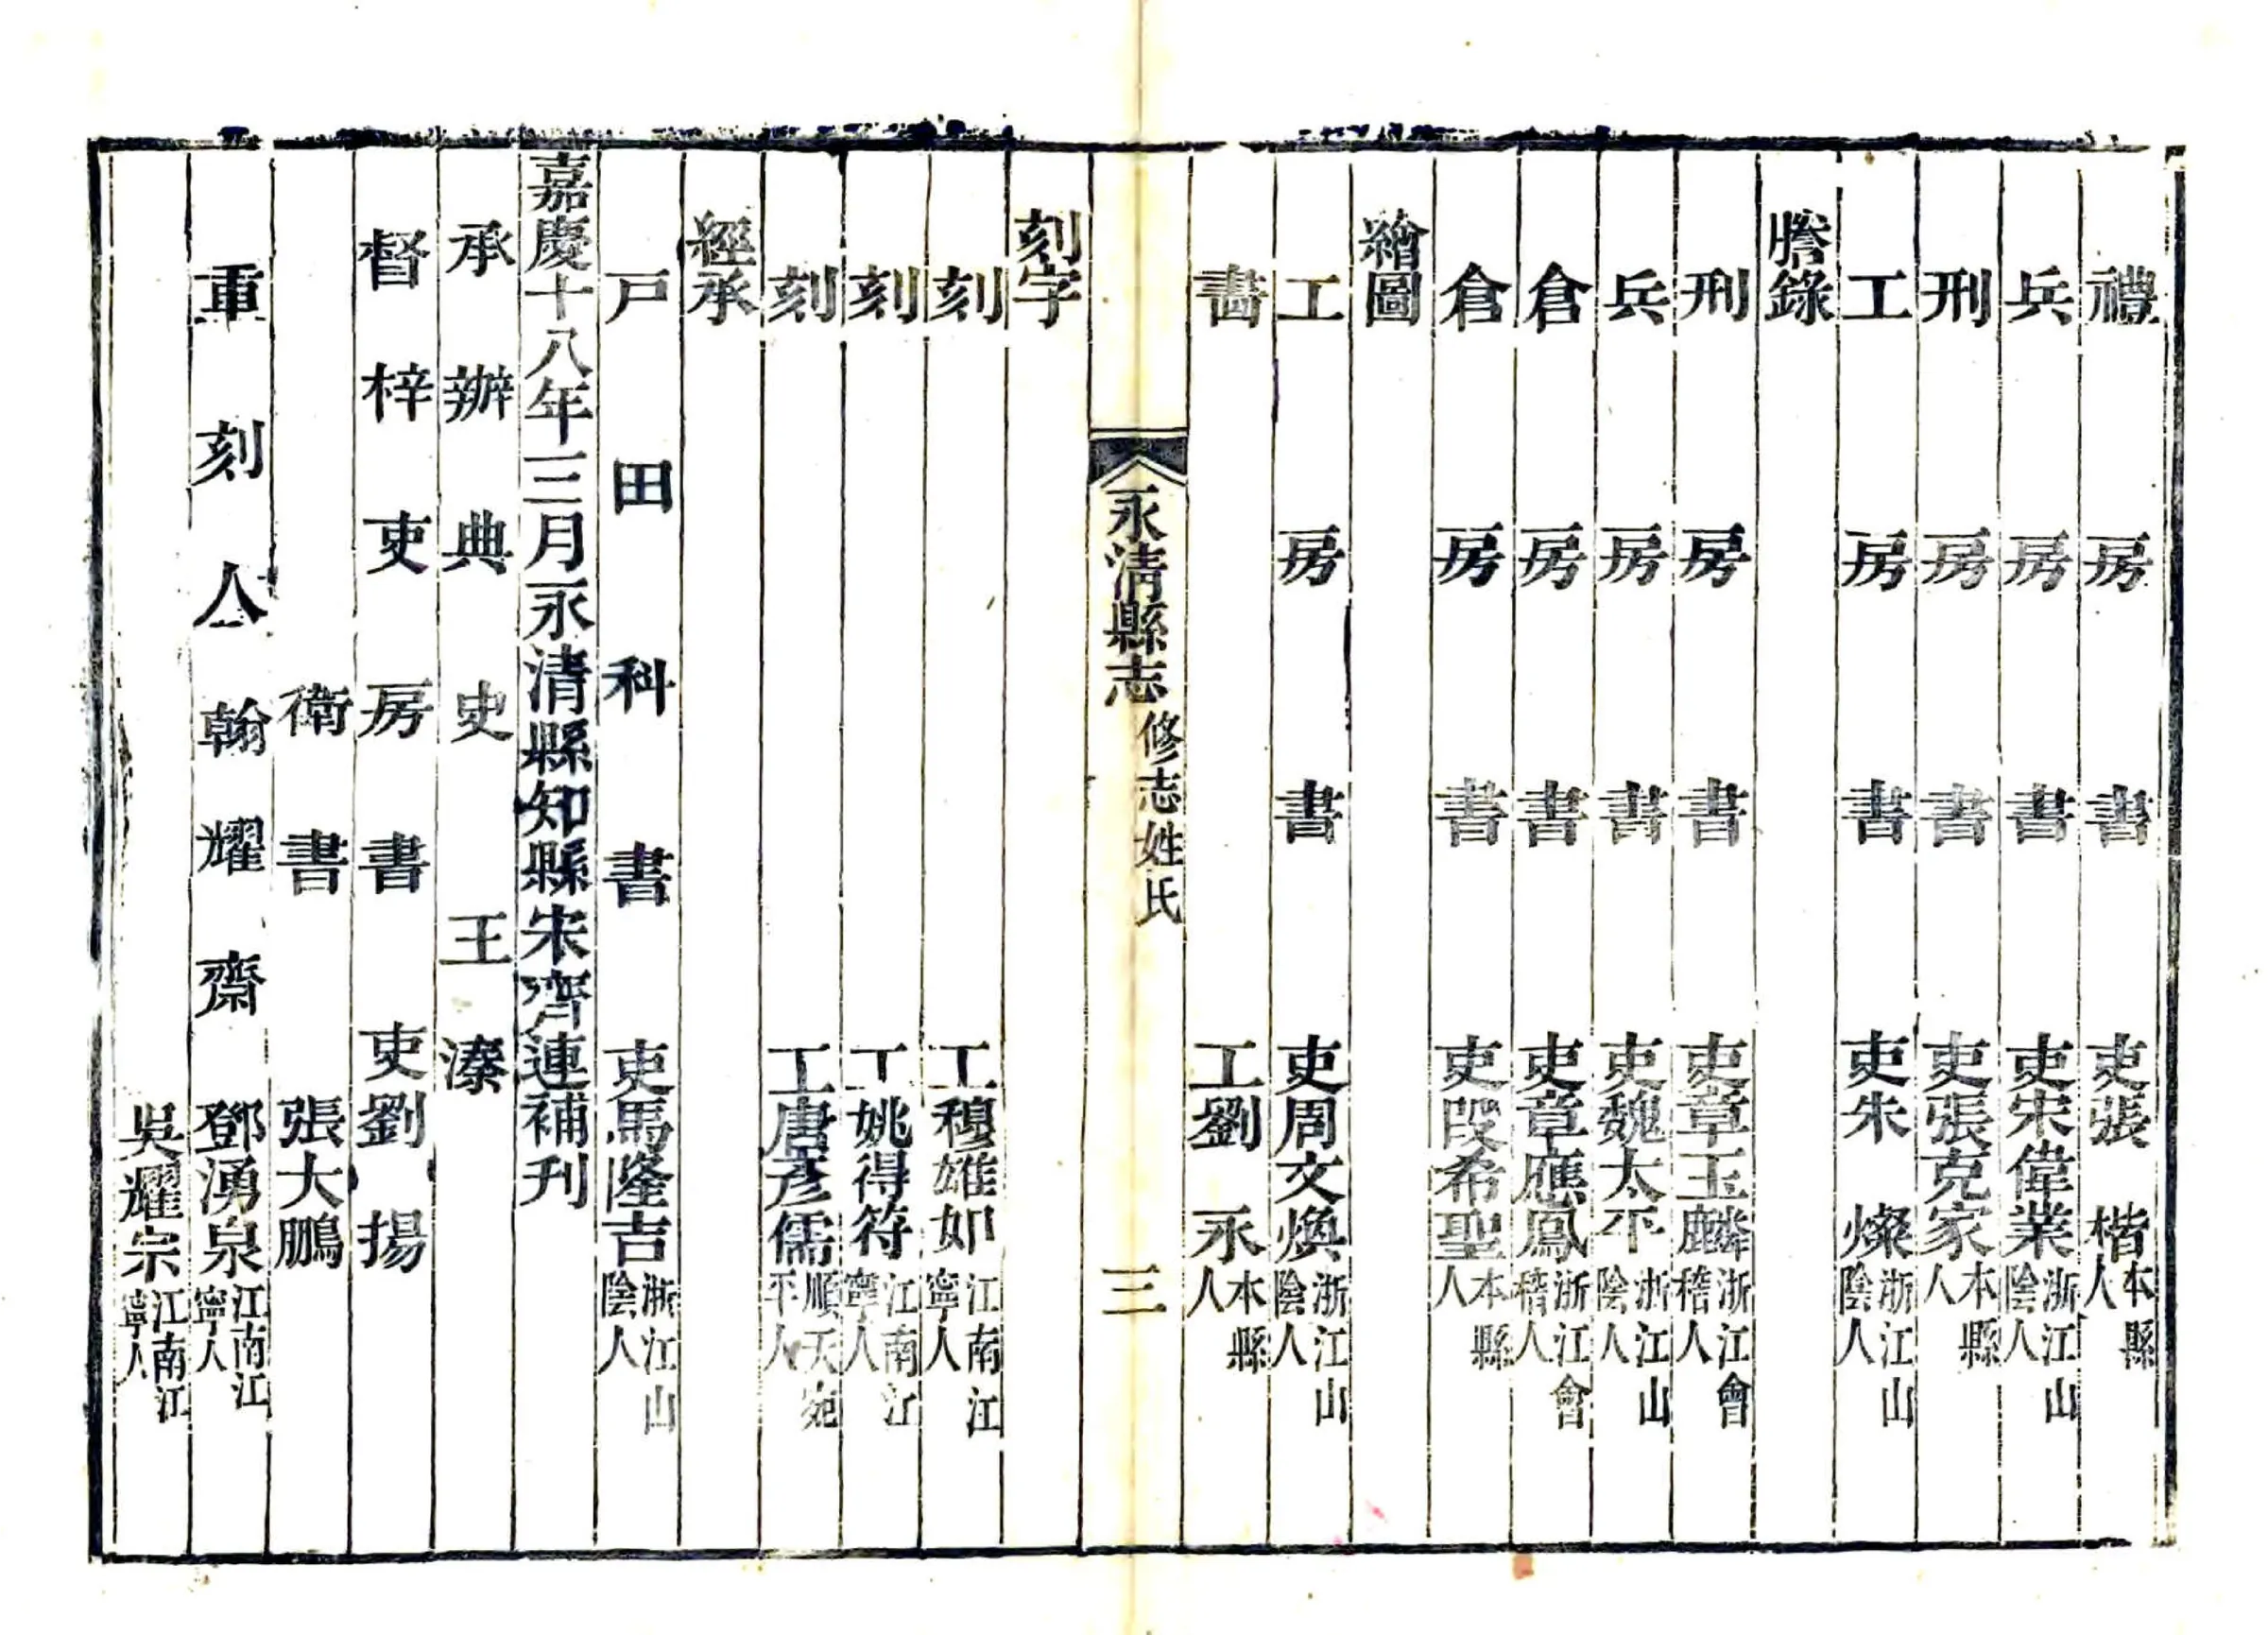 禮房書吏張楷本縣人
兵房書吏宋偉業浙江山陰人
刑房書吏張克家本縣人
工房書吏朱燦浙江山陰人
謄錄
刑房書吏章玉麟浙江會稽人
兵房書吏魏太平浙江山陰人
倉房書吏章應鳳浙江會稽人
倉房書吏段希聖本縣人
繪圖
工房書吏周文煥浙江山陰人
畵工劉永本縣人
永清縣志 修志姓氏 三
刻字
刻工穆雄如江南江寧人
刻工姚得符江南江寧人
刻工唐彥儒順天宛平人
經承
戶田科書吏馬隆吉浙江山陰人
嘉慶十八年三月永清縣知縣宋齊連補刊
承辦典史王溱
督梓吏房書吏劉揚
衛書張大鵬
重刻人翰耀齋鄧湧泉江南江寧人
吳耀宗江南江寧人